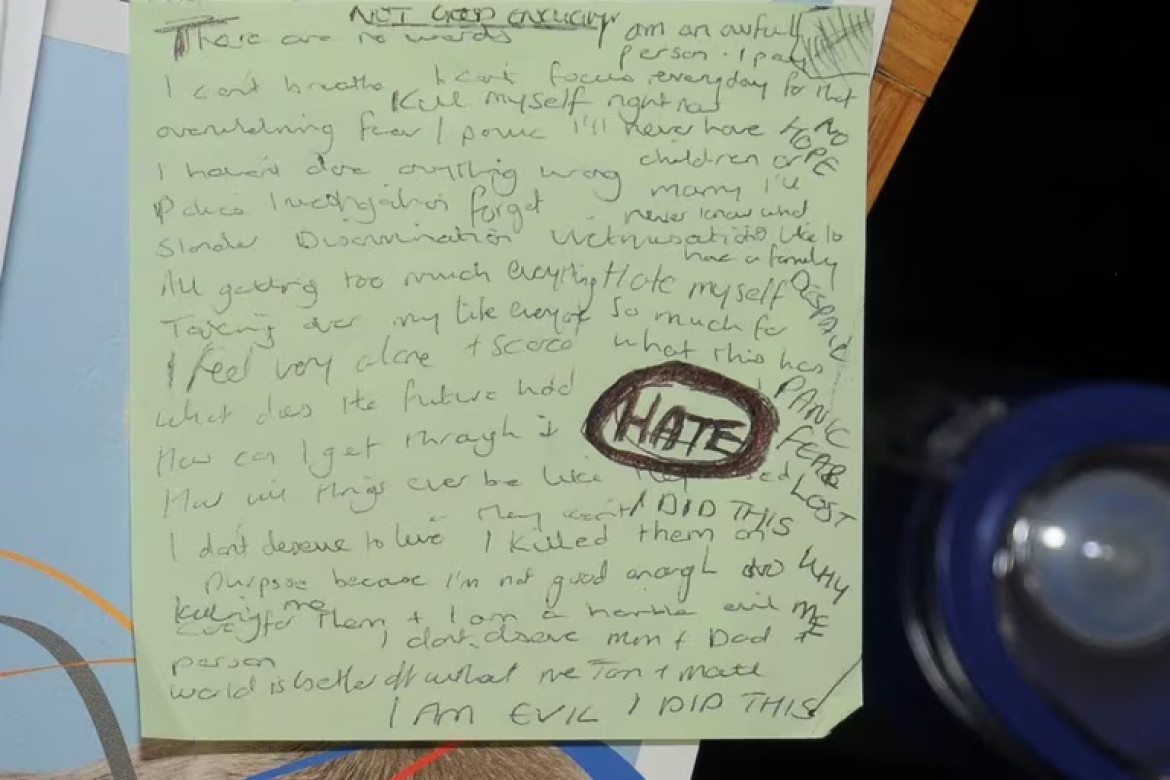 NOT GOOD ENOUGH
There are no words
I am an awful
person. I pay
everyday for that
I can't breathe I can't focus
Kill myself right now
overwhelming fear / panic I'll never have
children or
marry I'll
never know what
it's like to
have a family
NO
HOPE
I haven't done anything wrong
Police Investigation forget
Slander Discrimination Victimisation
All getting too much everything Hate myself
so much for
what this has
DESPAIR
Taking over my life everyday
I feel very alone + scared
what does the future hold
HATE
PANIC
FEAR
LOST
How can I get through it
How will things ever be like they used
they won't I DID THIS
I don't deserve to live I killed them on
purpose because I'm not good enough
WHY
ME
killing me
care for them + I am a horrible evil
person
I don't deserve mum + Dad +
world is better off without me Tom + mate
I AM EVIL I DID THIS